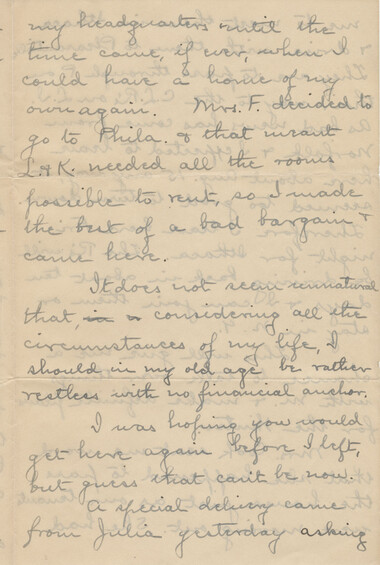 my headquarters until the
time came, if ever, when I
could have a home of my
own again. Mrs. F. decided to
go to Phila. & that meant
L. & K. needed all the rooms
possible to rent, so I made
the but of a bad bargain &
came here.
It does not seem unnatural
that, considering all the
circumstances of my life, I
should in my old age be rather
restless with no financial anchor.
I was hoping you would
get here again before I left,
but guess that can't be now.
A special delivery came
from Julia yesterday asking